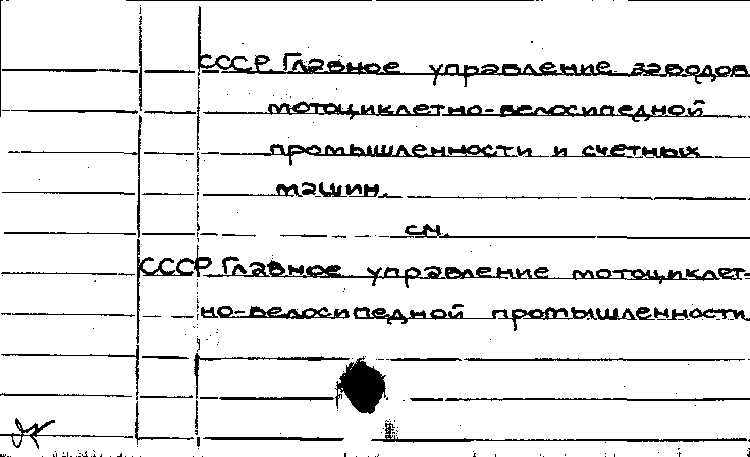 СССР. Главное управление заводов
мотоциклетно-велосипедной
промышленности и счетных
машин.
см.
СССР. Главное управление мотоциклет-
но-велосипедной промышленности.